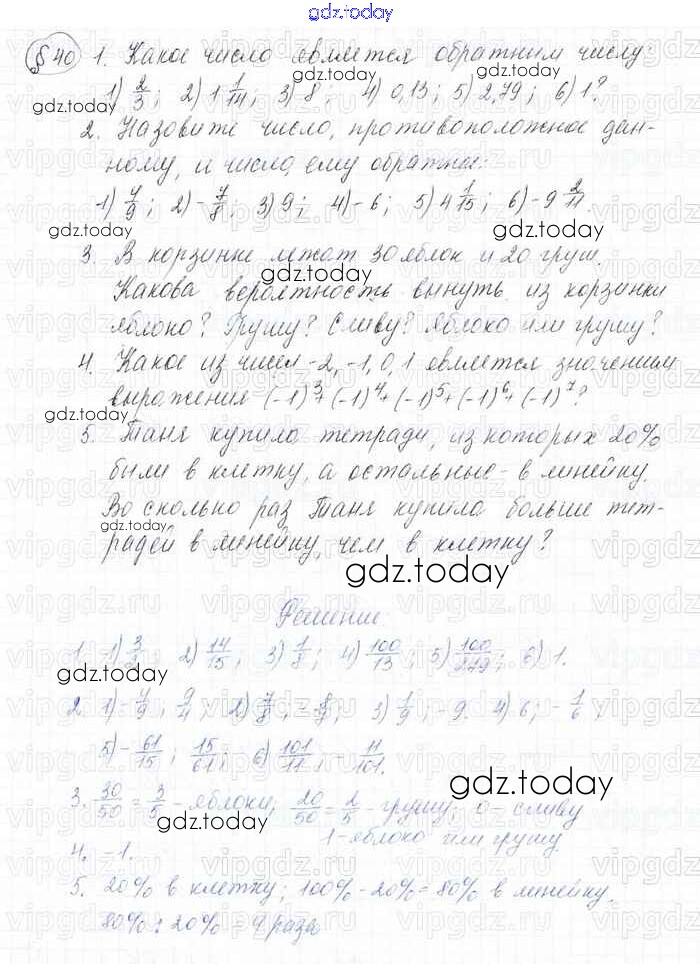 gdz.today
§ 40 1. Какое число является обратным числу:
1) 2/3; 2) 1 1/14; 3) 8; 4) 0,13; 5) 2,79; 6) 1?
2. Назовите число, противоположное дан-
ному, и число, ему обратное:
1) 4/9; 2) -7/8; 3) 9; 4) -6; 5) 4 1/15; 6) -9 2/11.
3. В корзинке лежат 30 яблок и 20 груш.
Какова вероятность вынуть из корзинки
яблоко? Грушу? Сливу? Яблоко или грушу?
4. Какое из чисел -2, -1, 0, 1 является значением
выражения (-1)³+(-1)⁴+(-1)⁵+(-1)⁶+(-1)⁷?
5. Таня купила тетради, из которых 20%
были в клетку, а остальные - в линейку.
Во сколько раз Таня купила больше тет-
радей в линейку, чем в клетку?
gdz.today
Решение:
1. 1) 3/2; 2) 14/15; 3) 1/8; 4) 100/13; 5) 100/279; 6) 1.
2. 1) -4/9; 9/4; 2) 7/8; -8/7; 3) 1/9; -9. 4) 6; -1/6;
5) -61/15; 15/61; 6) 101/11; -11/101.
3. 30/50 = 3/5 - яблоки; 20/50 = 2/5 - грушу; 0 - сливу
1 - яблоко или грушу
4. -1.
5. 20% в клетку; 100% - 20% = 80% в линейку.
80% : 20% = 4 раза